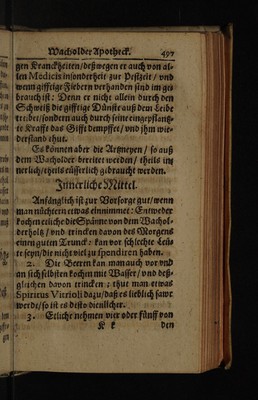 Wacholder Apotheck. 497
gen Kranckheiten/deßwegen er auch von al-
len Medicin insonderheit zur Pestzeit / vnd
wenn gifftige Fiebern verhanden sind im ge-
brauch ist: Denn er nicht allein durch den
Schweiß die gifftige Dünste auß dem Leibe
treibet/sondern auch durch seine eingepflantz-
te Krafft das Gifft dempffet/vnd jhm wie-
derstand thut.
Es können aber die Artzneyen / so auß
dem Wacholder bereitet werden / theils in-
nerlich/theils eüsserlich gebraucht werden.
Jnnerliche Mittel.
Anfänglich ist zur Vorsorge gut/wenn
man nüchtern etwas einnimmet: Entweder
kochen etliche die Späne von dem Wachol-
derholtz / vnd trincken davon des Morgens
einen guten Trunck: kan vor schlechte Leü-
te seyn/die nicht viel zu spondiren haben.
2. Die Beern kan man auch vor vnd
an sich selbsten kochen mit Wasser / vnd deß-
gleichen davon trincken ; thut man etwas
Spiritus Vitrioli dazu/daß es lieblich sawr
werde/so ist es desto dienlicher.
3. Etliche nehmen vier oder fünff von
K k den